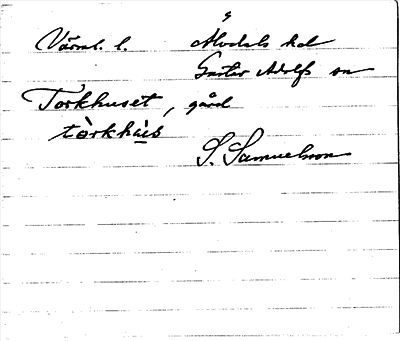 Värml. l. Älvdals hd
Gustav Adolfs sn
Torkhuset, gård
tòrkhùis
S. Samuelsson